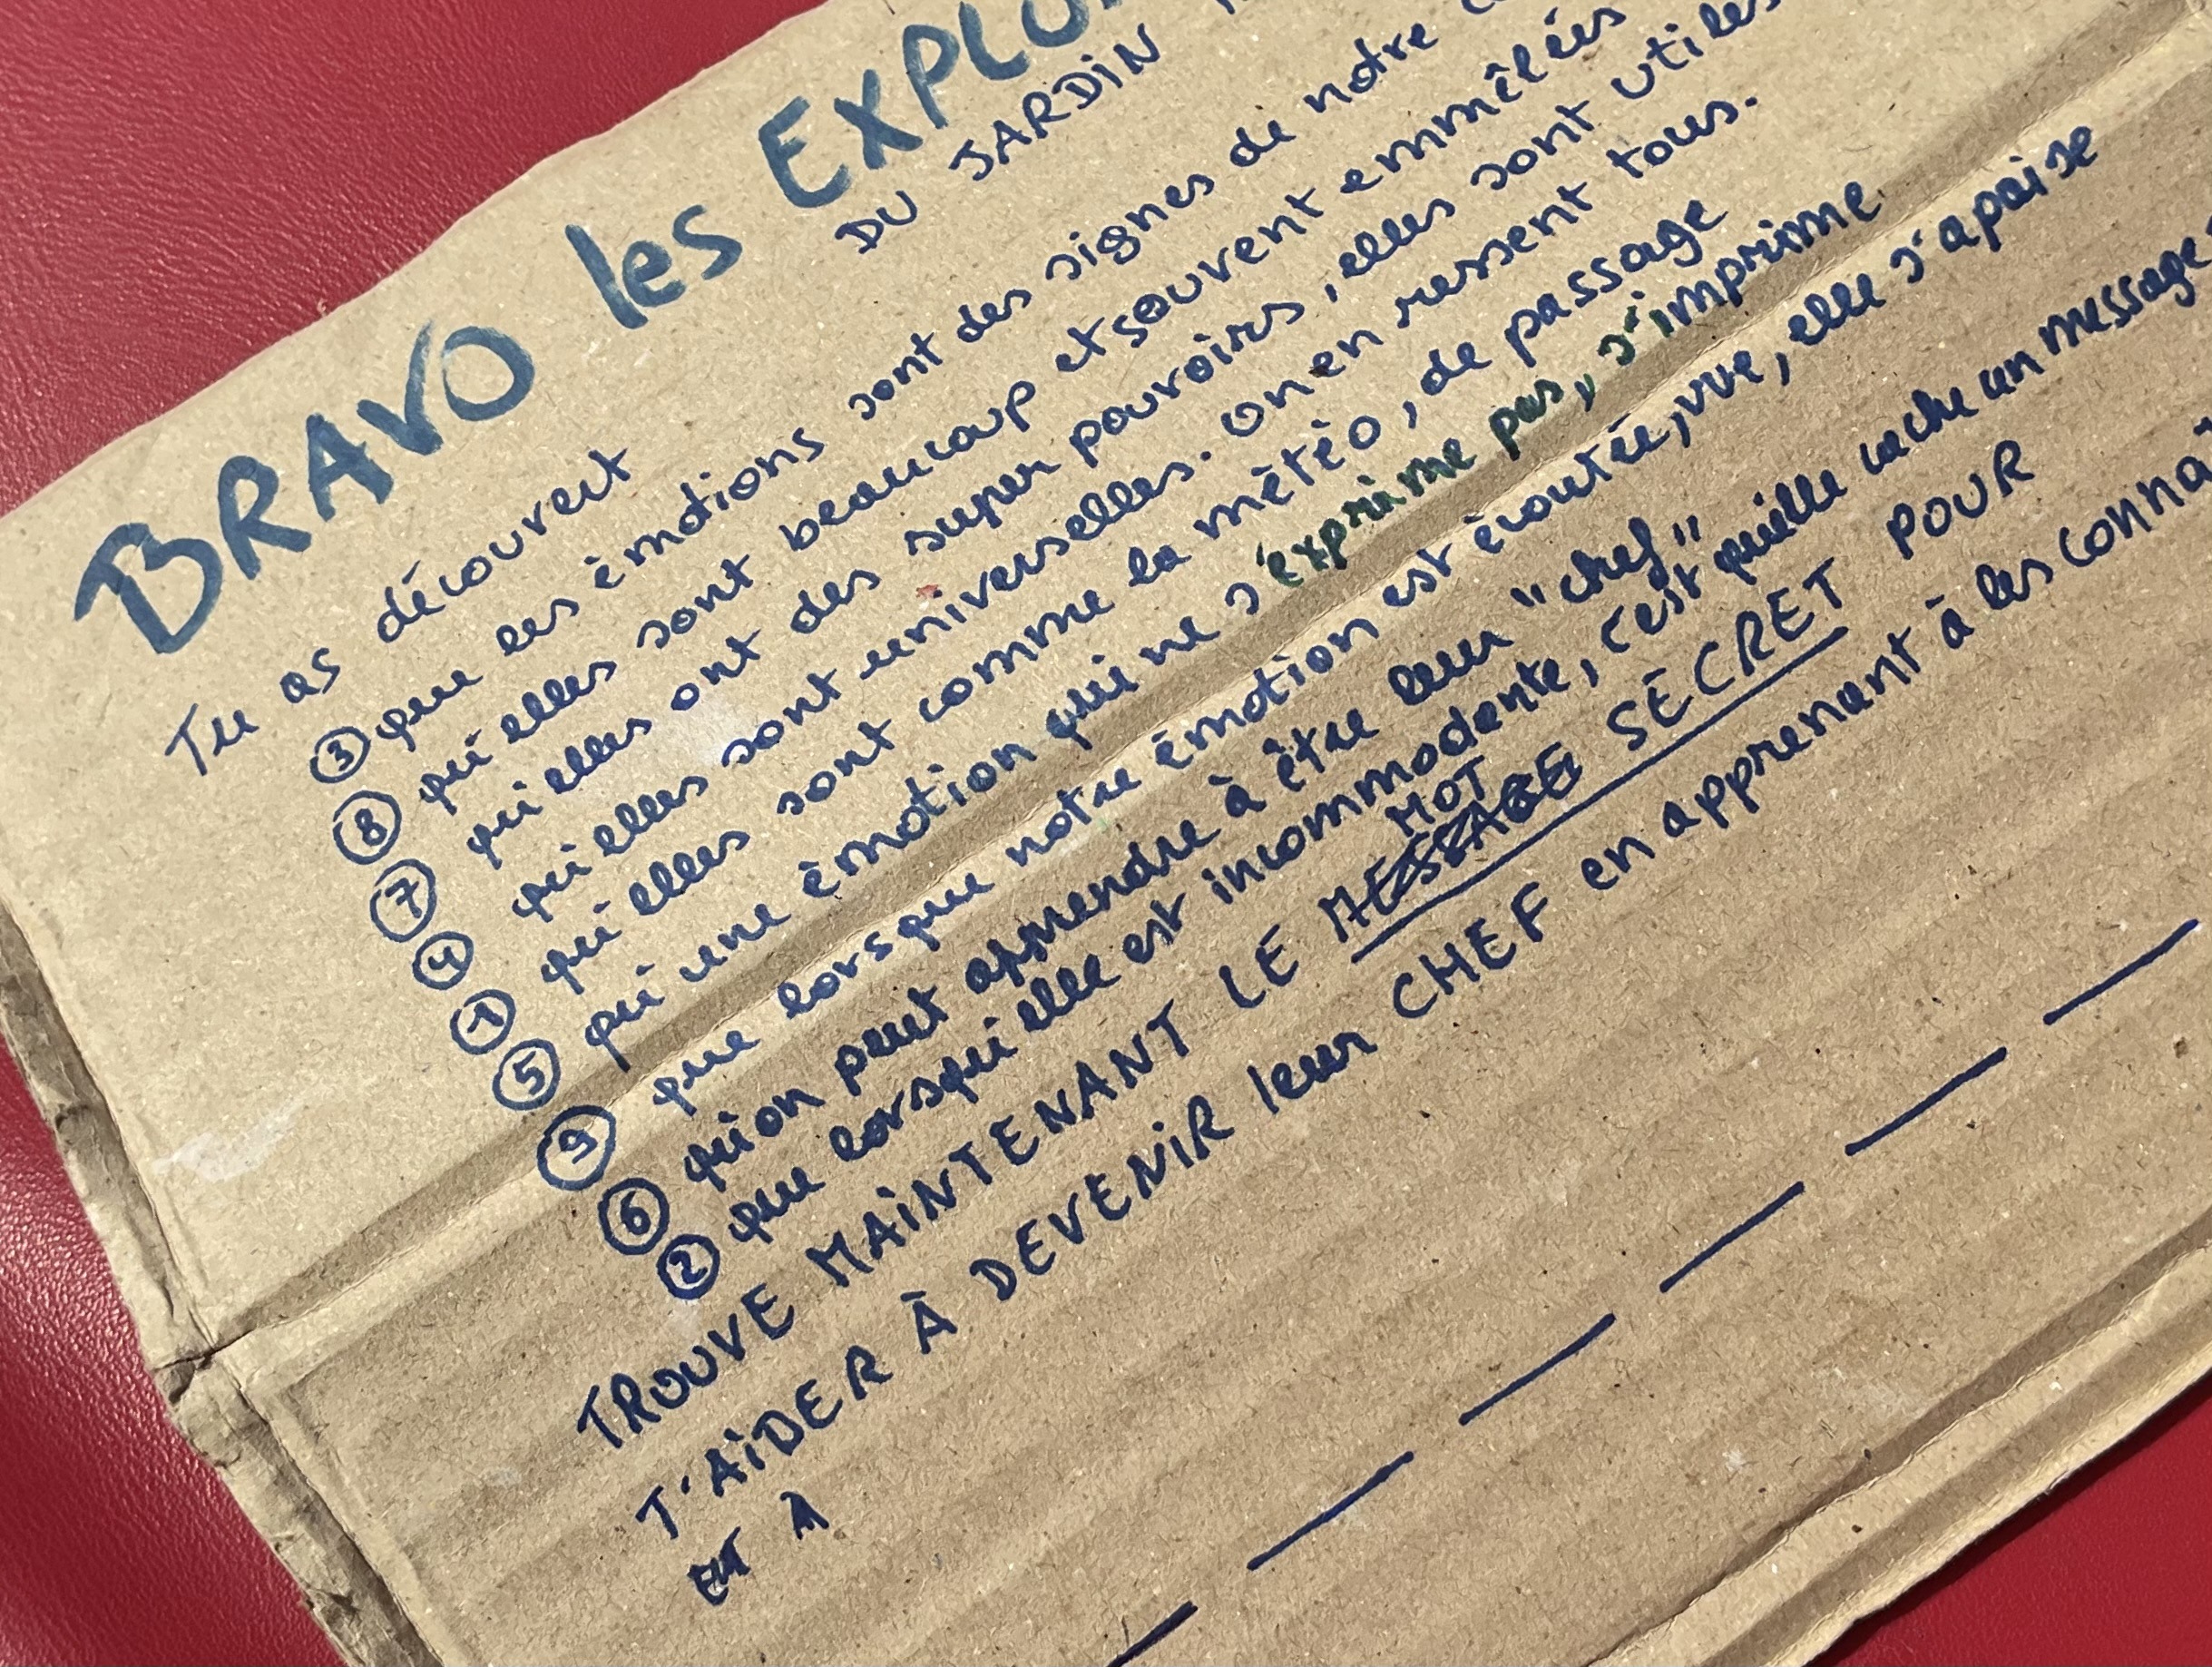 BRAVO les
DU JARDIN
Tu as découvert
③ que les émotions sont des signes de notre
⑧ qu'elles sont beaucoup et souvent emmêlées
⑦ qu'elles ont des super pouvoirs, elles sont utiles
④ qu'elles sont universelles. On en ressent tous.
① qu'elles sont comme la météo, de passage
⑤ qu'une émotion qui ne s'exprime pas, s'imprime
⑨ que lorsque notre émotion est écoutée, vue, elle s'apaise
⑥ qu'on peut apprendre à être leur "chef"
② que lorsqu'elle est incommodante, c'est qu'elle cache un message.
TROUVE MAINTENANT LE MESSAGE MOT SECRET POUR
T'AIDER À DEVENIR leur CHEF en apprenant à les
ET À